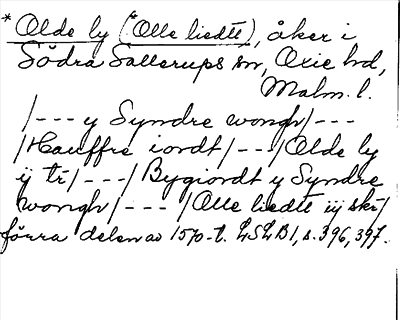 *Olde ly (*Olle liedtt), åker i
Södra Sallerups sn, Oxie hd,
Malm. l.
/--- y Syndre wongh/---
/Hauffre iordt/---/Olde ly
ij tr/---/Bygiordt y Syndre
wongh/--- /Olle liedtt iij skr/
förra delen av 1570-t. LSLB1, s. 396, 397.